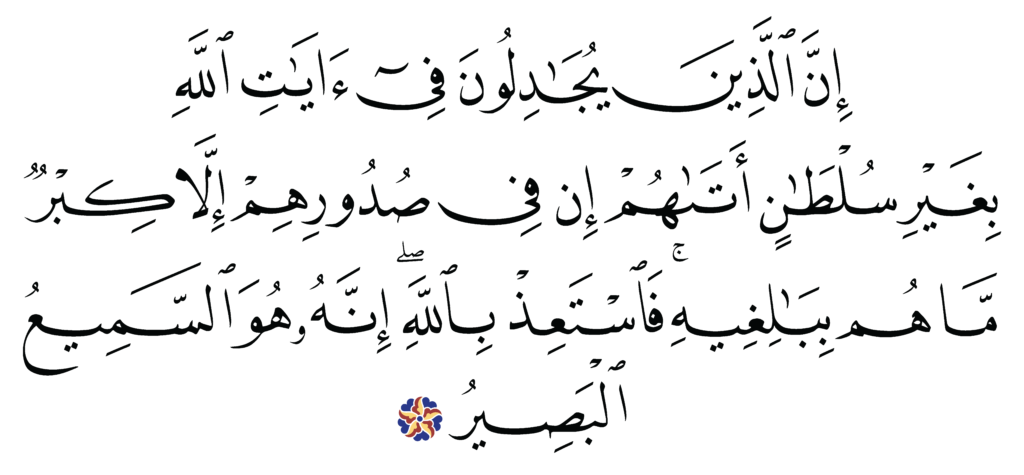 إِنَّ ٱلَّذِينَ يُجَـٰدِلُونَ فِىٓ ءَايَـٰتِ ٱللَّهِ
بِغَيْرِ سُلْطَـٰنٍ أَتَىٰهُمْ إِن فِى صُدُورِهِمْ إِلَّا كِبْرٌ
مَّا هُم بِبَـٰلِغِيهِ ۚ فَٱسْتَعِذْ بِٱللَّهِ ۖ إِنَّهُۥ هُوَ ٱلسَّمِيعُ
ٱلْبَصِيرُ